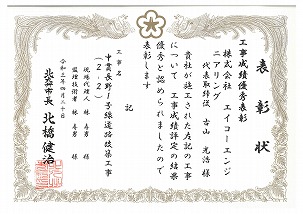 表彰状
工事成績優秀表彰
株式会社 エイコーエンジ
ニアリング
代表取締役 古山 光治 様
貴社が施工された左記の工事
について 工事成績評定の結果
優秀と認められましたので
表彰します
記
工事名
中貫長野1号線道路改築工事
(2-2)
現場代理人 林 寿男 様
監理技術者 林 寿男 様
令和三年四月三十日
北九州市長 北橋健治